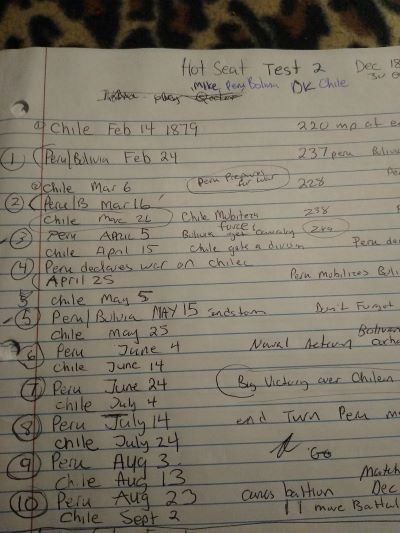 Hot Seat Test 2 Dec 18
Mike Peru Bolivia DK Chile
Chile Feb 14 1879 220 mp at e
1 Peru/Bolivia Feb 24 237 peru Boliv
Chile Mar 6 Peru Prepares for war 228
2 Peru/B Mar 16
Chile Mar 26 Chile Mobilizes 238
3 Peru April 5 Bolivia get Cavalry
Chile April 15 Chile gets a divisin Peru de
4 Peru declares war on chile
April 25 Peru mobilizes Boli
5 chile May 5
5 Peru/Bolivia MAY 15 Don't Forget
chile may 25
6 Peru June 4 Naval Action Bolivian
Chile June 14
7 Peru June 24 Big Victory over Chilean
Chile July 4
8 Peru July 14 end Turn Peru
chile July 24
9 Peru Aug 3. Go
Chile Aug 13 Match
10 Peru Aug 23 Dec
Chile Sept 2 11 more Battal